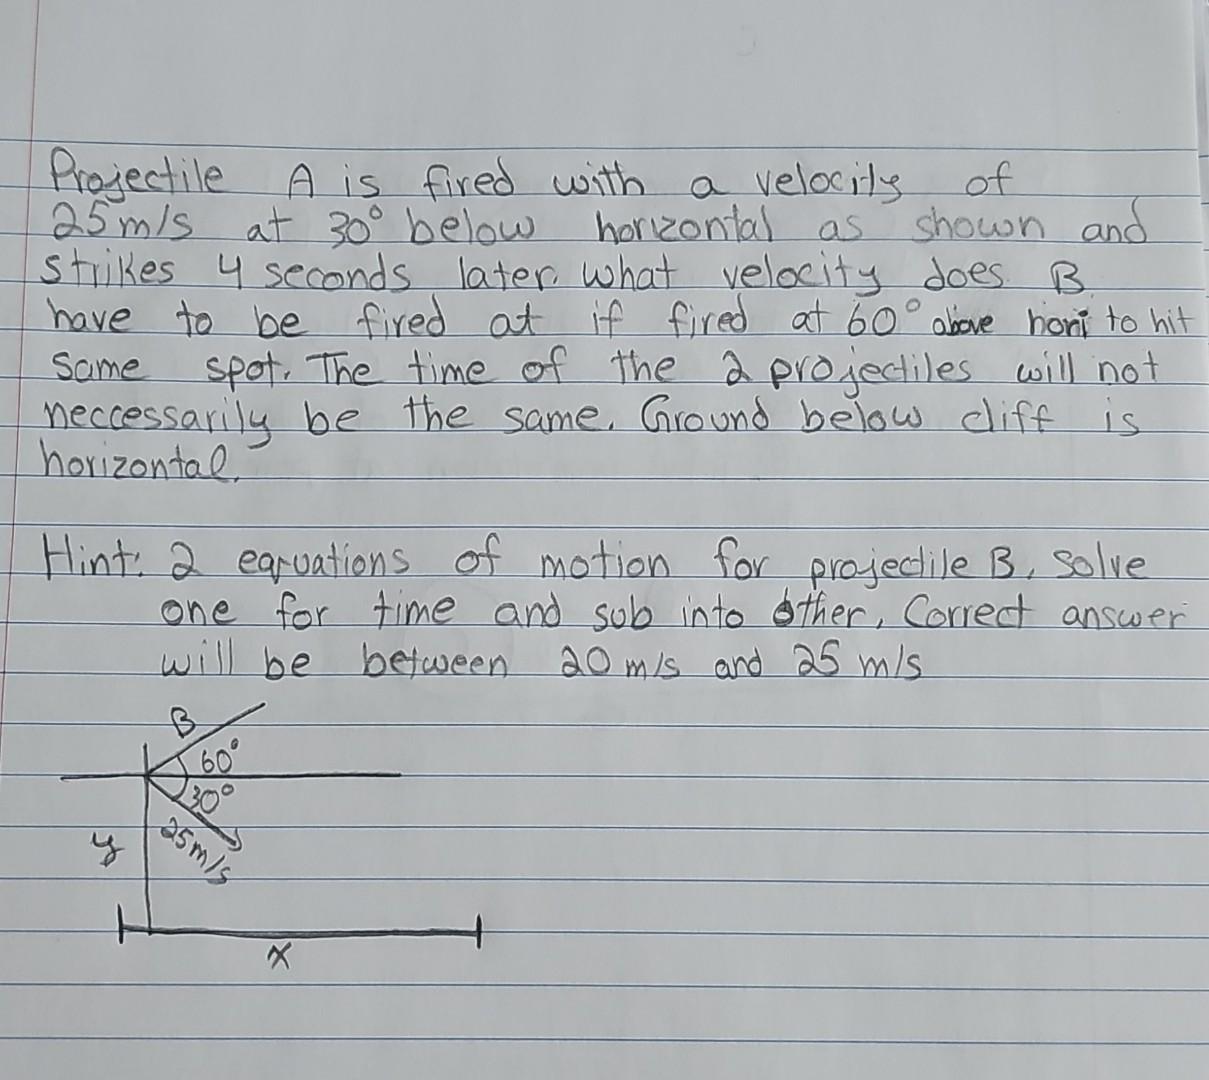 Projectile A is fired with a velocity of
25 m/s at 30° below horizontal as shown and
strikes 4 seconds later. What velocity does B
have to be fired at if fired at 60° above hori to hit
same spot. The time of the 2 projectiles will not
neccessarily be the same. Ground below cliff is
horizontal.
Hint: 2 equations of motion for projectile B, solve
one for time and sub into other, Correct answer
will be between 20 m/s and 25 m/s
B
60°
30°
25 m/s
y
x